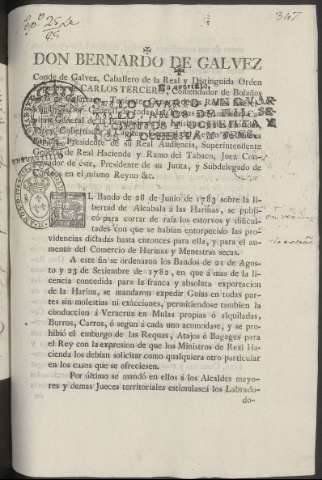 347
DON BERNARDO DE GALVEZ
Conde de Galvez, Caballero de la Real y Distinguida Orden
CARLOS TERCERO, Comendador de Bolaños
SELLO QUARTO, UN QUAR-
TILLO, AÑOS DE MIL SE-
CIENTOS Y OCHENTA Y
Presidente de su Real Audiencia, Superintendente
General de Real Hacienda y Ramo del Tabaco, Juez Con-
servador de éste, Presidente de su Junta, y Subdelegado de
Correos en el mismo Reyno &c.
EL Bando de 28 de Junio de 1783 sobre la li-
bertad de Alcabala á las Harinas, se publi-
có para cortar de raiz los estorvos y dificul-
tades con que se habian entorpecido las pro-
videncias dictadas hasta entonces para ella, y para el au-
mento del Comercio de Harinas y Menestras secas.
A este fin se ordenaron los Bandos de 21 de Agos-
to y 23 de Setiembre de 1782, en que á mas de la li-
cencia concedida para la franca y absoluta exportacion
de la Harina, se mandaron expedir Guias en todas par-
tes sin molestias ni exâcciones, permitiendose tambien la
conduccion á Veracruz en Mulas propias ó alquiladas,
Burros, Carros, ó segun á cada uno acomodase, y se pro-
hibió el embargo de las Requas, Atajos ó Bagages para
el Rey con la expresion de que los Ministros de Real Ha-
cienda los debian solicitar como qualquiera otro particular
en los casos que se ofreciesen.
Por último se mandó en ellos á los Alcaldes mayo-
res y demas Jueces territoriales estimulasen los Labrado-
do-